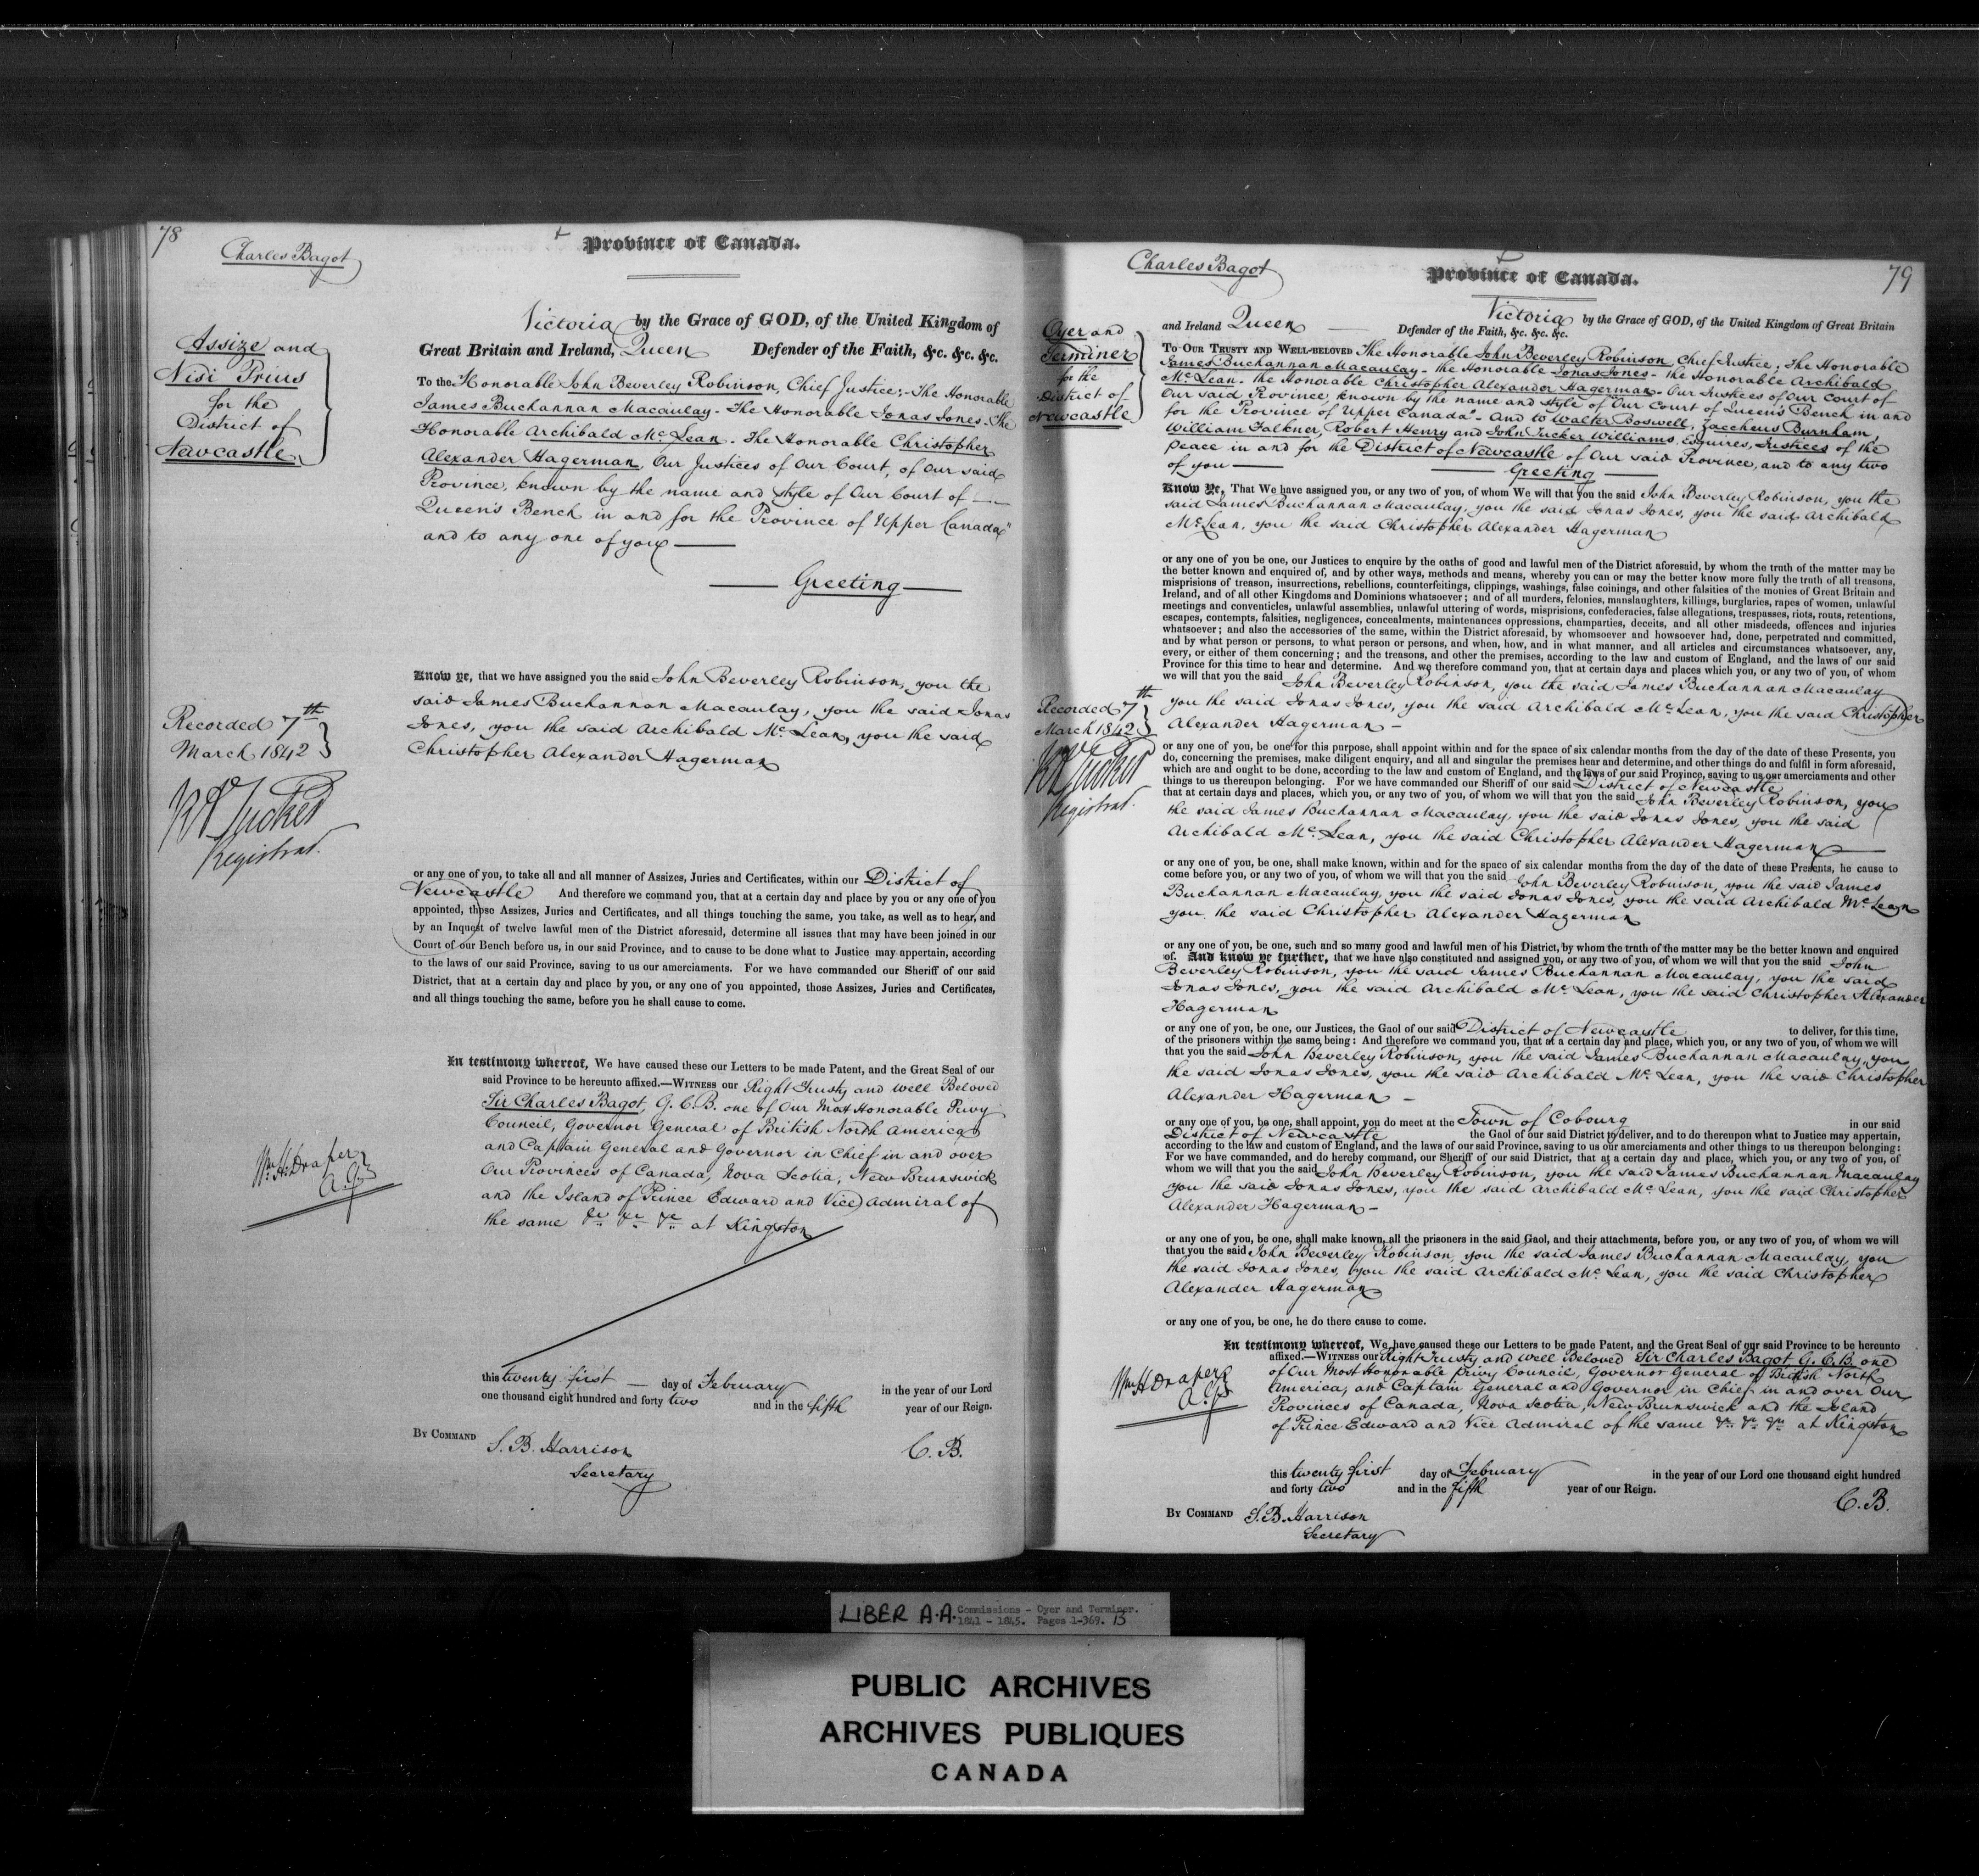 78
Charles Bagot
Province of Canada.
Assize and
Nisi Prius
for the
District of
Newcastle
Victoria by the Grace of GOD, of the United Kingdom of
Great Britain and Ireland, Queen Defender of the Faith, &c. &c. &c.
To the Honorable John Beverley Robinson, Chief Justice;- The Honorable
James Buchannan Macaulay - The Honorable Jonas Jones - The
Honorable Archibald Mc Lean - The Honorable Christopher
Alexander Hagerman, Our Justices of Our Court, of Our said
Province, known by the name and style of Our Court of
Queen's Bench in and for the Province of Upper Canada"
and to any one of you
Greeting
Know ye, that we have assigned you the said John Beverley Robinson, you the
said James Buchannan Macaulay, you the said Jonas
Jones, you the said Archibald Mc Lean, you the said
Christopher Alexander Hagerman
Recorded 7th
March 1842
R A Tucker
Registrar.
or any one of you, to take all and all manner of Assizes, Juries and Certificates, within our District of
Newcastle And therefore we command you, that at a certain day and place by you or any one of you
appointed, those Assizes, Juries and Certificates, and all things touching the same, you take, as well as to hear, and
by an Inquest of twelve lawful men of the District aforesaid, determine all issues that may have been joined in our
Court of our Bench before us, in our said Province, and to cause to be done what to Justice may appertain, according
to the laws of our said Province, saving to us our amerciaments. For we have commanded our Sheriff of our said
District, that at a certain day and place by you, or any one of you appointed, those Assizes, Juries and Certificates,
and all things touching the same, before you he shall cause to come.
In testimony whereof, We have caused these our Letters to be made Patent, and the Great Seal of our
said Province to be hereunto affixed.—WITNESS our Right Trusty and Well Beloved
Sir Charles Bagot, G.C.B. one of Our Most Honorable Privy
Council, Governor General of British North America
and Captain General and Governor in Chief in and over
Our Provinces of Canada, Nova Scotia, New Brunswick
and the Island of Prince Edward and Vice Admiral of
the same &c &c &c at Kingston
Wm. H. Draper
A.G.
this twenty first day of February in the year of our Lord
one thousand eight hundred and forty two and in the fifth year of our Reign.
BY COMMAND
S. B. Harrison
Secretary
C. B.
Charles Bagot
Province of Canada.
79
Oyer and
Terminer
for the
District of
Newcastle
Victoria by the Grace of GOD, of the United Kingdom of Great Britain
and Ireland Queen Defender of the Faith, &c. &c. &c.
TO OUR TRUSTY AND WELL-BELOVED The Honorable John Beverley Robinson Chief Justice, The Honorable
James Buchannan Macaulay - the Honorable Jonas Jones - the Honorable Archibald
Mc Lean - the Honorable Christopher Alexander Hagerman - Our Justices of Our Court of
Our said Province, known by the name and style of Our Court of Queen's Bench in and
for the Province of Upper Canada" - And to Walter Boswell, Zaccheus Burnham,
William Falkner, Robert Henry and John Tucker Williams, Esquires, Justices of the
Peace in and for the District of Newcastle of Our said Province, and to any two
of you
Greeting
Know Ye, That We have assigned you, or any two of you, of whom We will that you the said John Beverley Robinson, you the
said James Buchannan Macaulay, you the said Jonas Jones, you the said Archibald
Mc Lean, you the said Christopher Alexander Hagerman
or any one of you be one, our Justices to enquire by the oaths of good and lawful men of the District aforesaid, by whom the truth of the matter may be
the better known and enquired of, and by other ways, methods and means, whereby you can or may the better know more fully the truth of all treasons,
misprisions of treason, insurrections, rebellions, counterfeitings, clippings, washings, false coinings, and other falsities of the monies of Great Britain and
Ireland, and of all other Kingdoms and Dominions whatsoever; and of all murders, felonies, manslaughters, killings, burglaries, rapes of women, unlawful
meetings and conventicles, unlawful assemblies, unlawful uttering of words, misprisions, confederacies, false allegations, trespasses, riots, routs, retentions,
escapes, contempts, falsities, negligences, concealments, maintenances oppressions, champarties, deceits, and all other misdeeds, offences and injuries
whatsoever; and also the accessories of the same, within the District aforesaid, by whomsoever and howsoever had, done, perpetrated and committed,
and by what person or persons, to what person or persons, and when, how, and in what manner, and all articles and circumstances whatsoever, any,
every, or either of them concerning; and the treasons, and other the premises, according to the law and custom of England, and the laws of our said
Province for this time to hear and determine. And we therefore command you, that at certain days and places which you, or any two of you, of whom
we will that you the said John Beverley Robinson, you the said James Buchannan Macaulay
you the said Jonas Jones, you the said Archibald Mc Lean, you the said Christopher
Alexander Hagerman -
Recorded 7th
March 1842
R A Tucker
Registrar.
or any one of you, be one for this purpose, shall appoint within and for the space of six calendar months from the day of the date of these Presents, you
do, concerning the premises, make diligent enquiry, and all and singular the premises hear and determine, and other things do and fulfil in form aforesaid,
which are and ought to be done, according to the law and custom of England, and the laws of our said Province, saving to us our amerciaments and other
things to us thereupon belonging. For we have commanded our Sheriff of our said District of Newcastle
that at certain days and places, which you, or any two of you, of whom we will that you the said John Beverley Robinson, you
the said James Buchannan Macaulay, you the said Jonas Jones, you the said
Archibald Mc Lean, you the said Christopher Alexander Hagerman
or any one of you, be one, shall make known, within and for the space of six calendar months from the day of the date of these Presents, he cause to
come before you, or any two of you, of whom we will that you the said John Beverley Robinson, you the said James
Buchannan Macaulay, you the said Jonas Jones, you the said Archibald Mc Lean
you the said Christopher Alexander Hagerman
or any one of you, be one, such and so many good and lawful men of his District, by whom the truth of the matter may be the better known and enquired
of. And know ye further, that we have also constituted and assigned you, or any two of you, of whom we will that you the said John
Beverley Robinson, you the said James Buchannan Macaulay, you the said
Jonas Jones, you the said Archibald Mc Lean, you the said Christopher Alexander
Hagerman
or any one of you, be one, our Justices, the Gaol of our said District of Newcastle to deliver, for this time,
of the prisoners within the same being: And therefore we command you, that at a certain day and place, which you, or any two of you, of whom we will
that you the said John Beverley Robinson, you the said James Buchannan Macaulay, you
the said Jonas Jones, you the said Archibald Mc Lean, you the said Christopher
Alexander Hagerman -
or any one of you, be one, shall appoint, you do meet at the Town of Cobourg in our said
District of Newcastle the Gaol of our said District to deliver, and to do thereupon what to Justice may appertain,
according to the law and custom of England, and the laws of our said Province, saving to us our amerciaments and other things to us thereupon belonging:
For we have commanded, and do hereby command, our Sheriff of our said District, that at a certain day and place, which you, or any two of you, of
whom we will that you the said John Beverley Robinson, you the said James Buchannan Macaulay
you the said Jonas Jones, you the said Archibald Mc Lean, you the said Christopher
Alexander Hagerman -
or any one of you, be one, shall make known, all the prisoners in the said Gaol, and their attachments, before you, or any two of you, of whom we will
that you the said John Beverley Robinson, you the said James Buchannan Macaulay, you
the said Jonas Jones, you the said Archibald Mc Lean, you the said Christopher
Alexander Hagerman
or any one of you, be one, he do there cause to come.
In testimony whereof, We have caused these our Letters to be made Patent, and the Great Seal of our said Province to be hereunto
affixed.—WITNESS our Right Trusty and Well Beloved Sir Charles Bagot, G.C.B. one
of Our Most Honorable Privy Council, Governor General of British North
America, and Captain General and Governor in Chief in and over Our
Provinces of Canada, Nova Scotia, New Brunswick and the Island
of Prince Edward and Vice Admiral of the same &c &c &c at Kingston
Wm H Draper
A.G.
this twenty first day of February in the year of our Lord one thousand eight hundred
and forty two and in the fifth year of our Reign.
C. B.
BY COMMAND S. B. Harrison
Secretary
LIBER A.A. Commissions - Oyer and Terminer.
1841 - 1845. Pages 1-369. B
PUBLIC ARCHIVES
ARCHIVES PUBLIQUES
CANADA